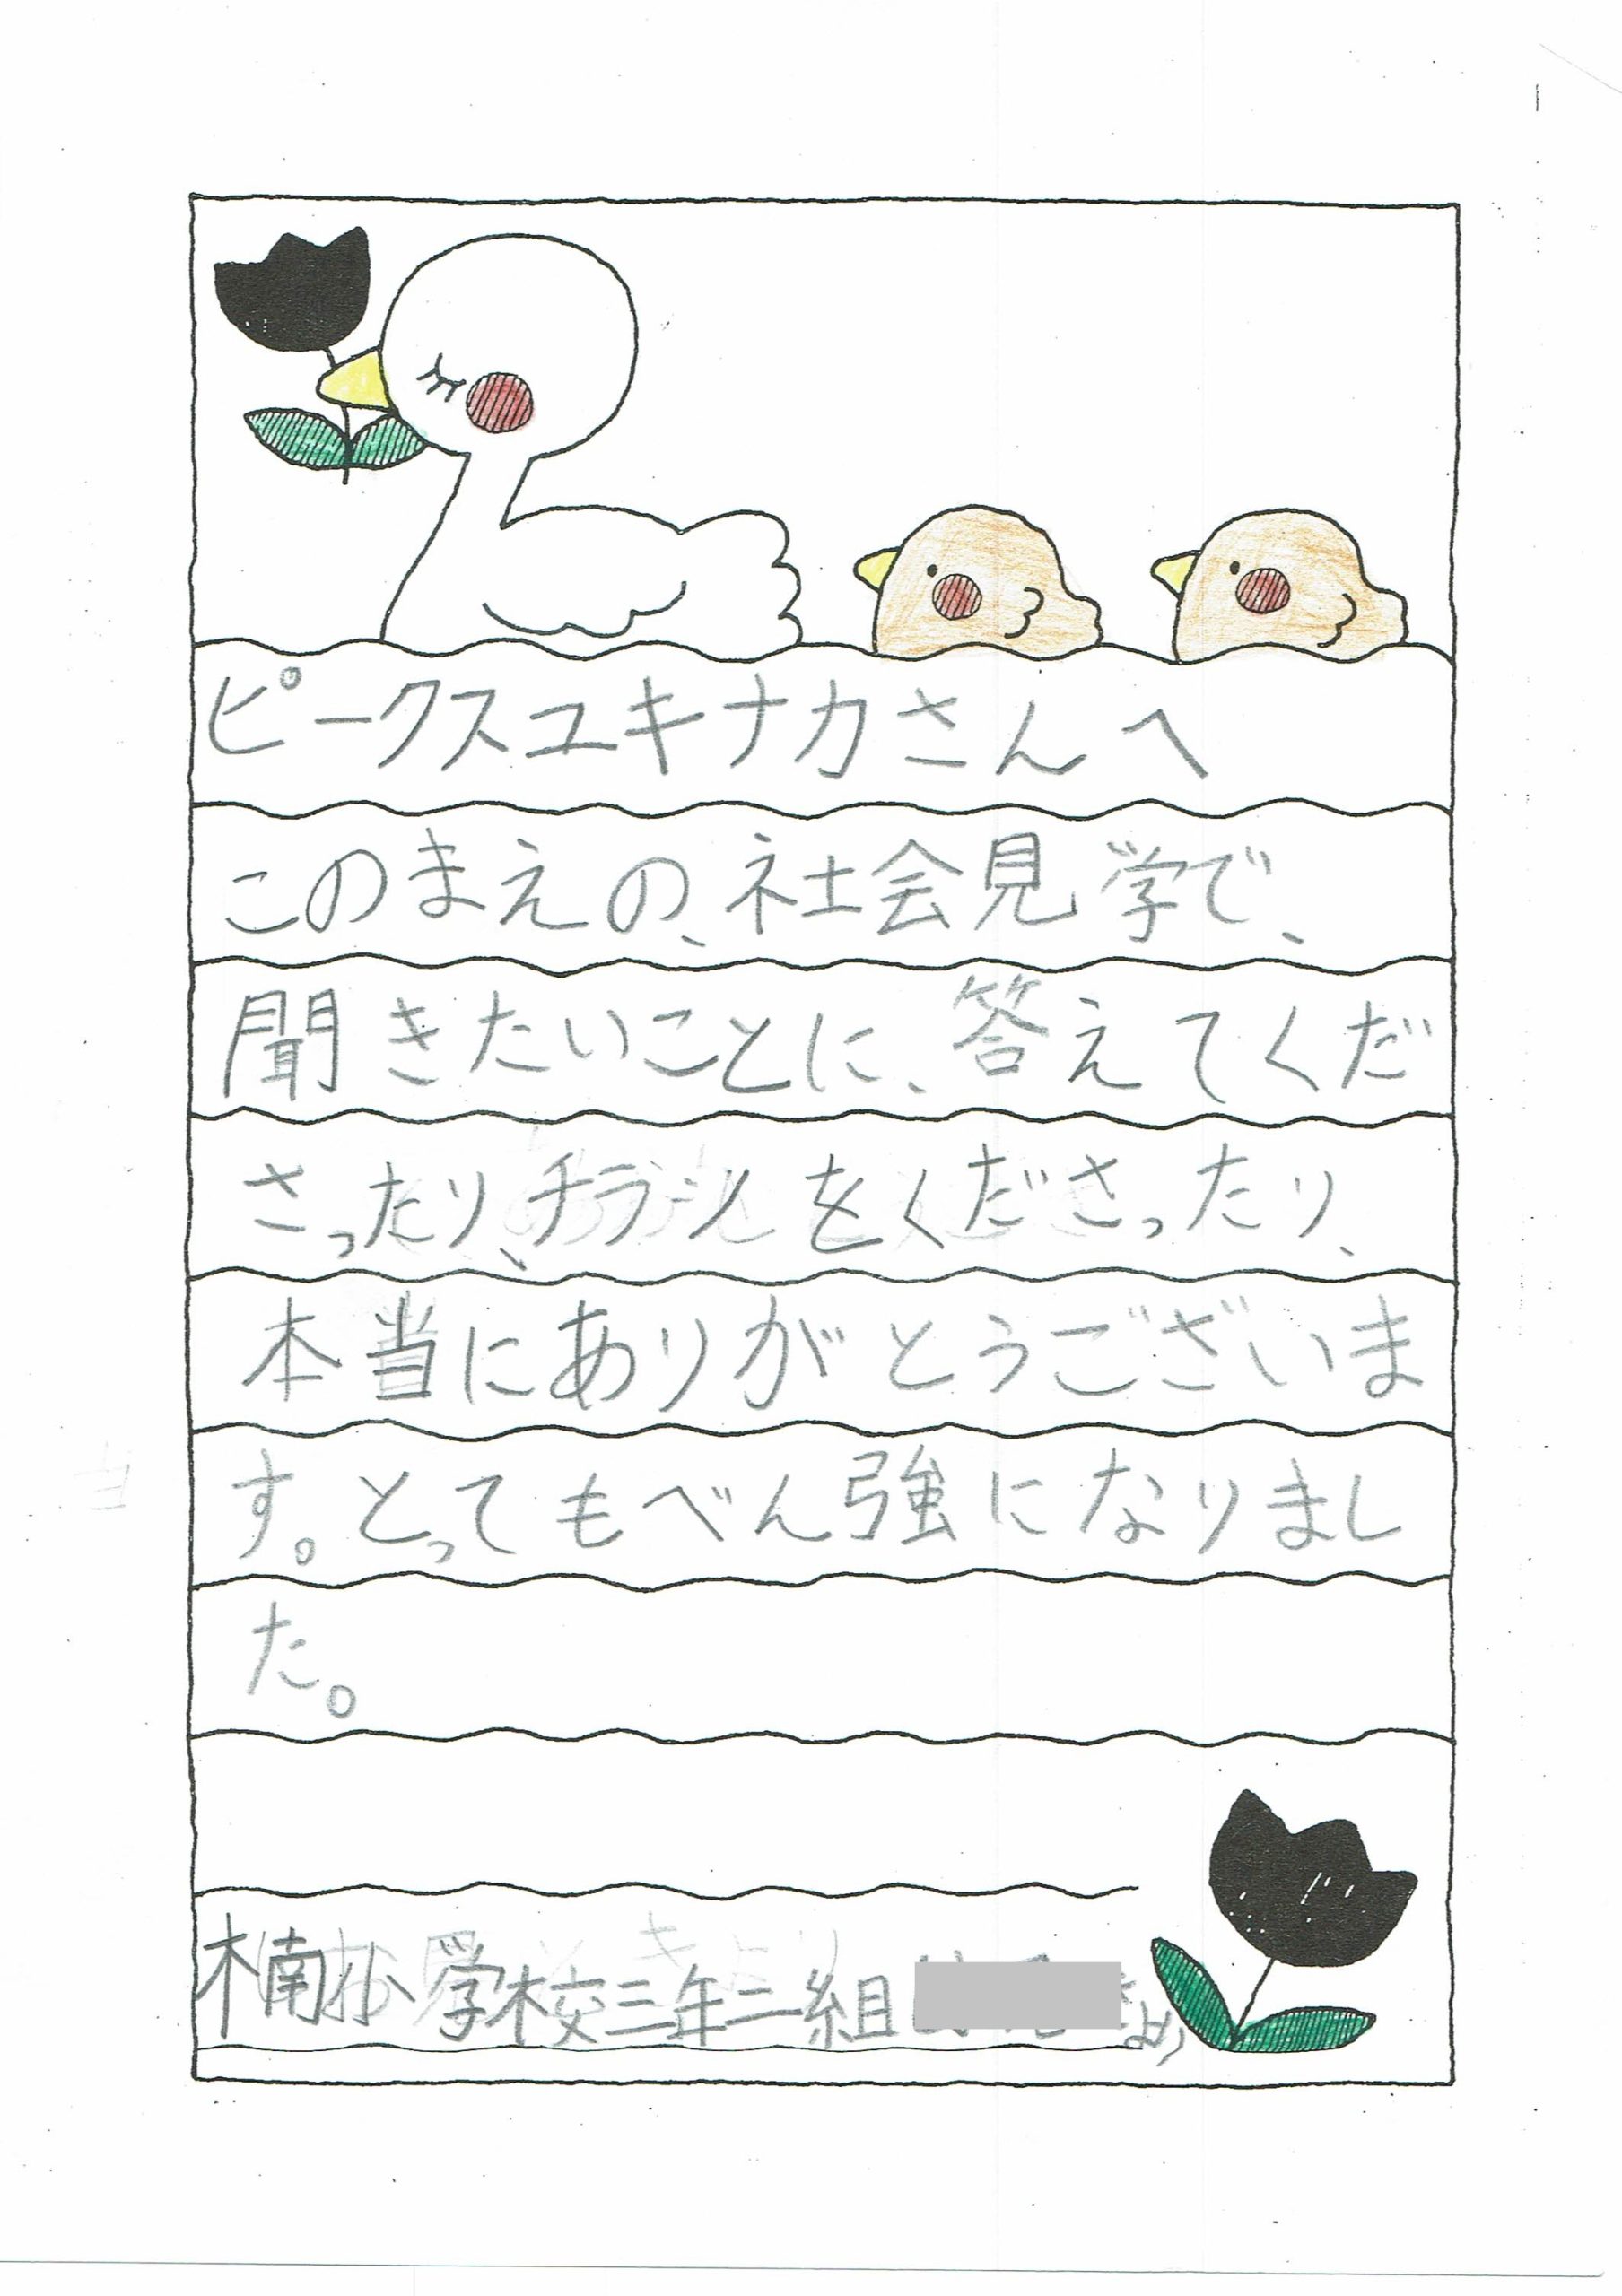 ピークスユキナカさんへ
このまえの、社会見学で、
聞きたいことに、答えてくだ
さったり、チラシをくださったり、
本当にありがとうございま
す。とってもべん強になりまし
た。
楠小学校三年二組
より